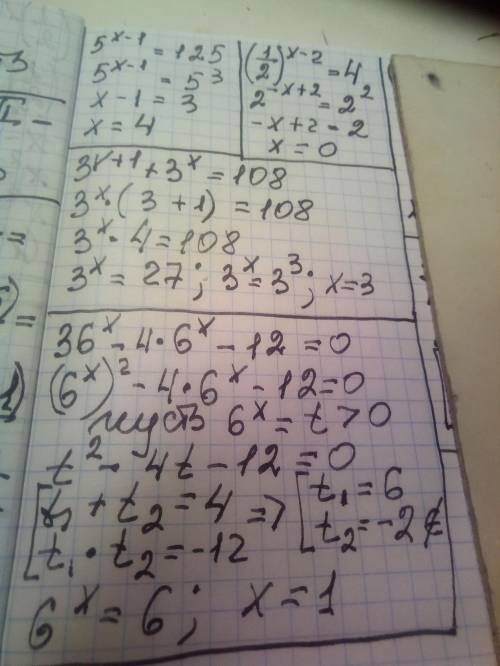 5^{x-1} = 125
5^{x-1} = 5^3
x - 1 = 3
x = 4
(1/2)^{x-2} = 4
2^{-x+2} = 2^2
-x+2 = 2
x = 0
3^{x+1} + 3^x = 108
3^x · (3 + 1) = 108
3^x · 4 = 108
3^x = 27; 3^x = 3^3; x = 3
36^x - 4 · 6^x - 12 = 0
(6^x)^2 - 4 · 6^x - 12 = 0
пусть 6^x = t > 0
t^2 - 4t - 12 = 0
[t_1 + t_2 = 4 => [t_1 = 6
t_1 · t_2 = -12 t_2 = -2 ∉
6^x = 6; x = 1